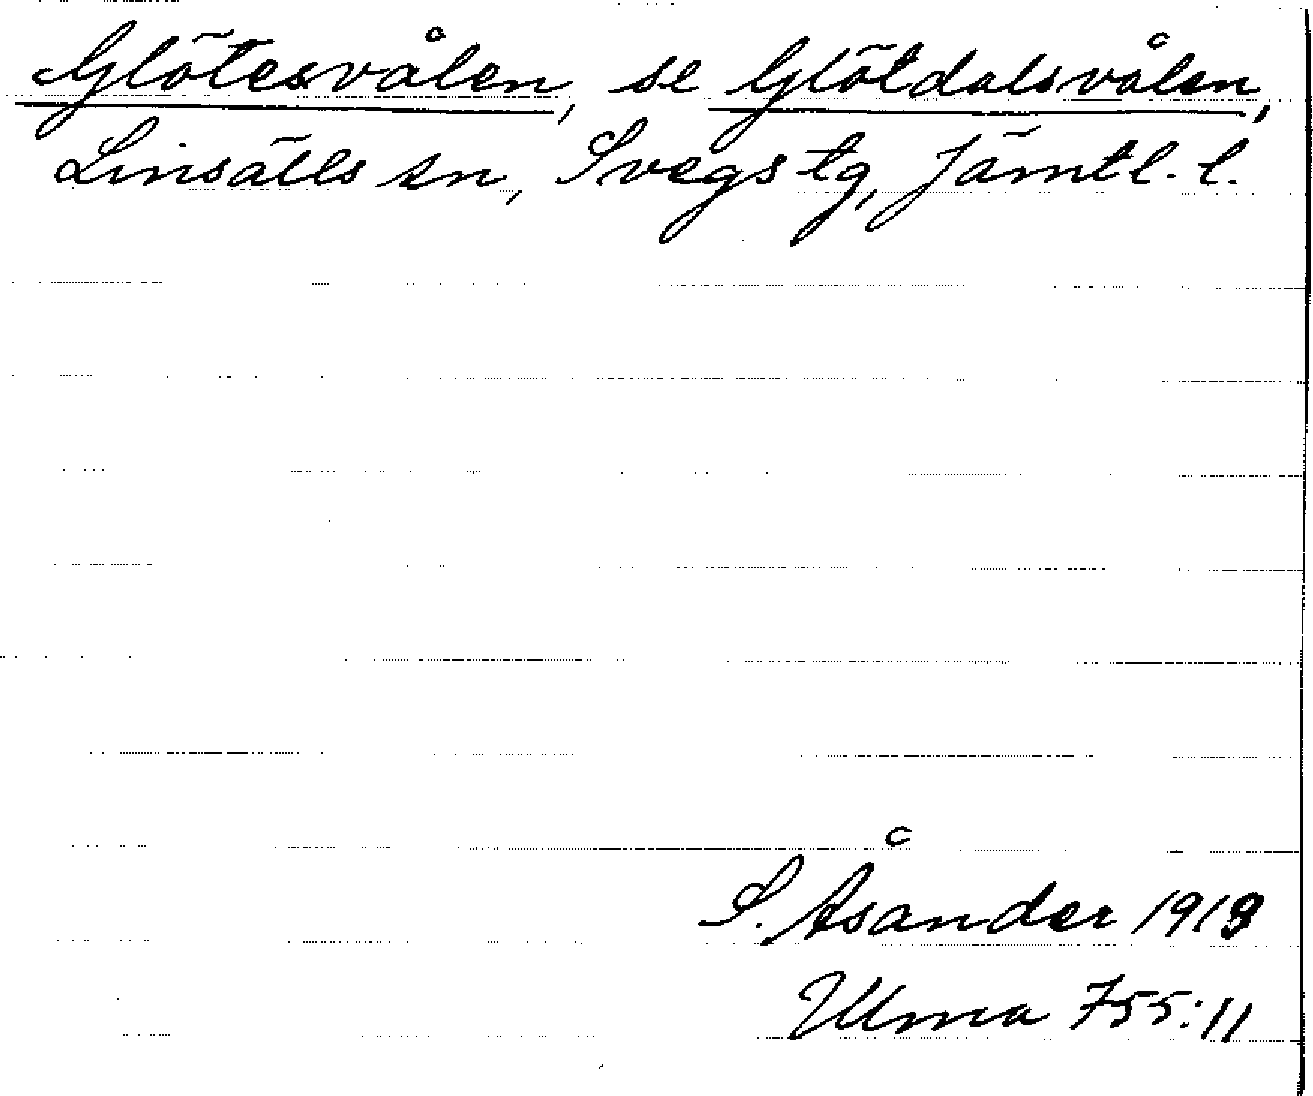 Glötesvålen, se Glötdalsvålen,
Linsälls sn, Svegs tg, Jämtl. l.
S. Åsander 1919
Ulma 755:11